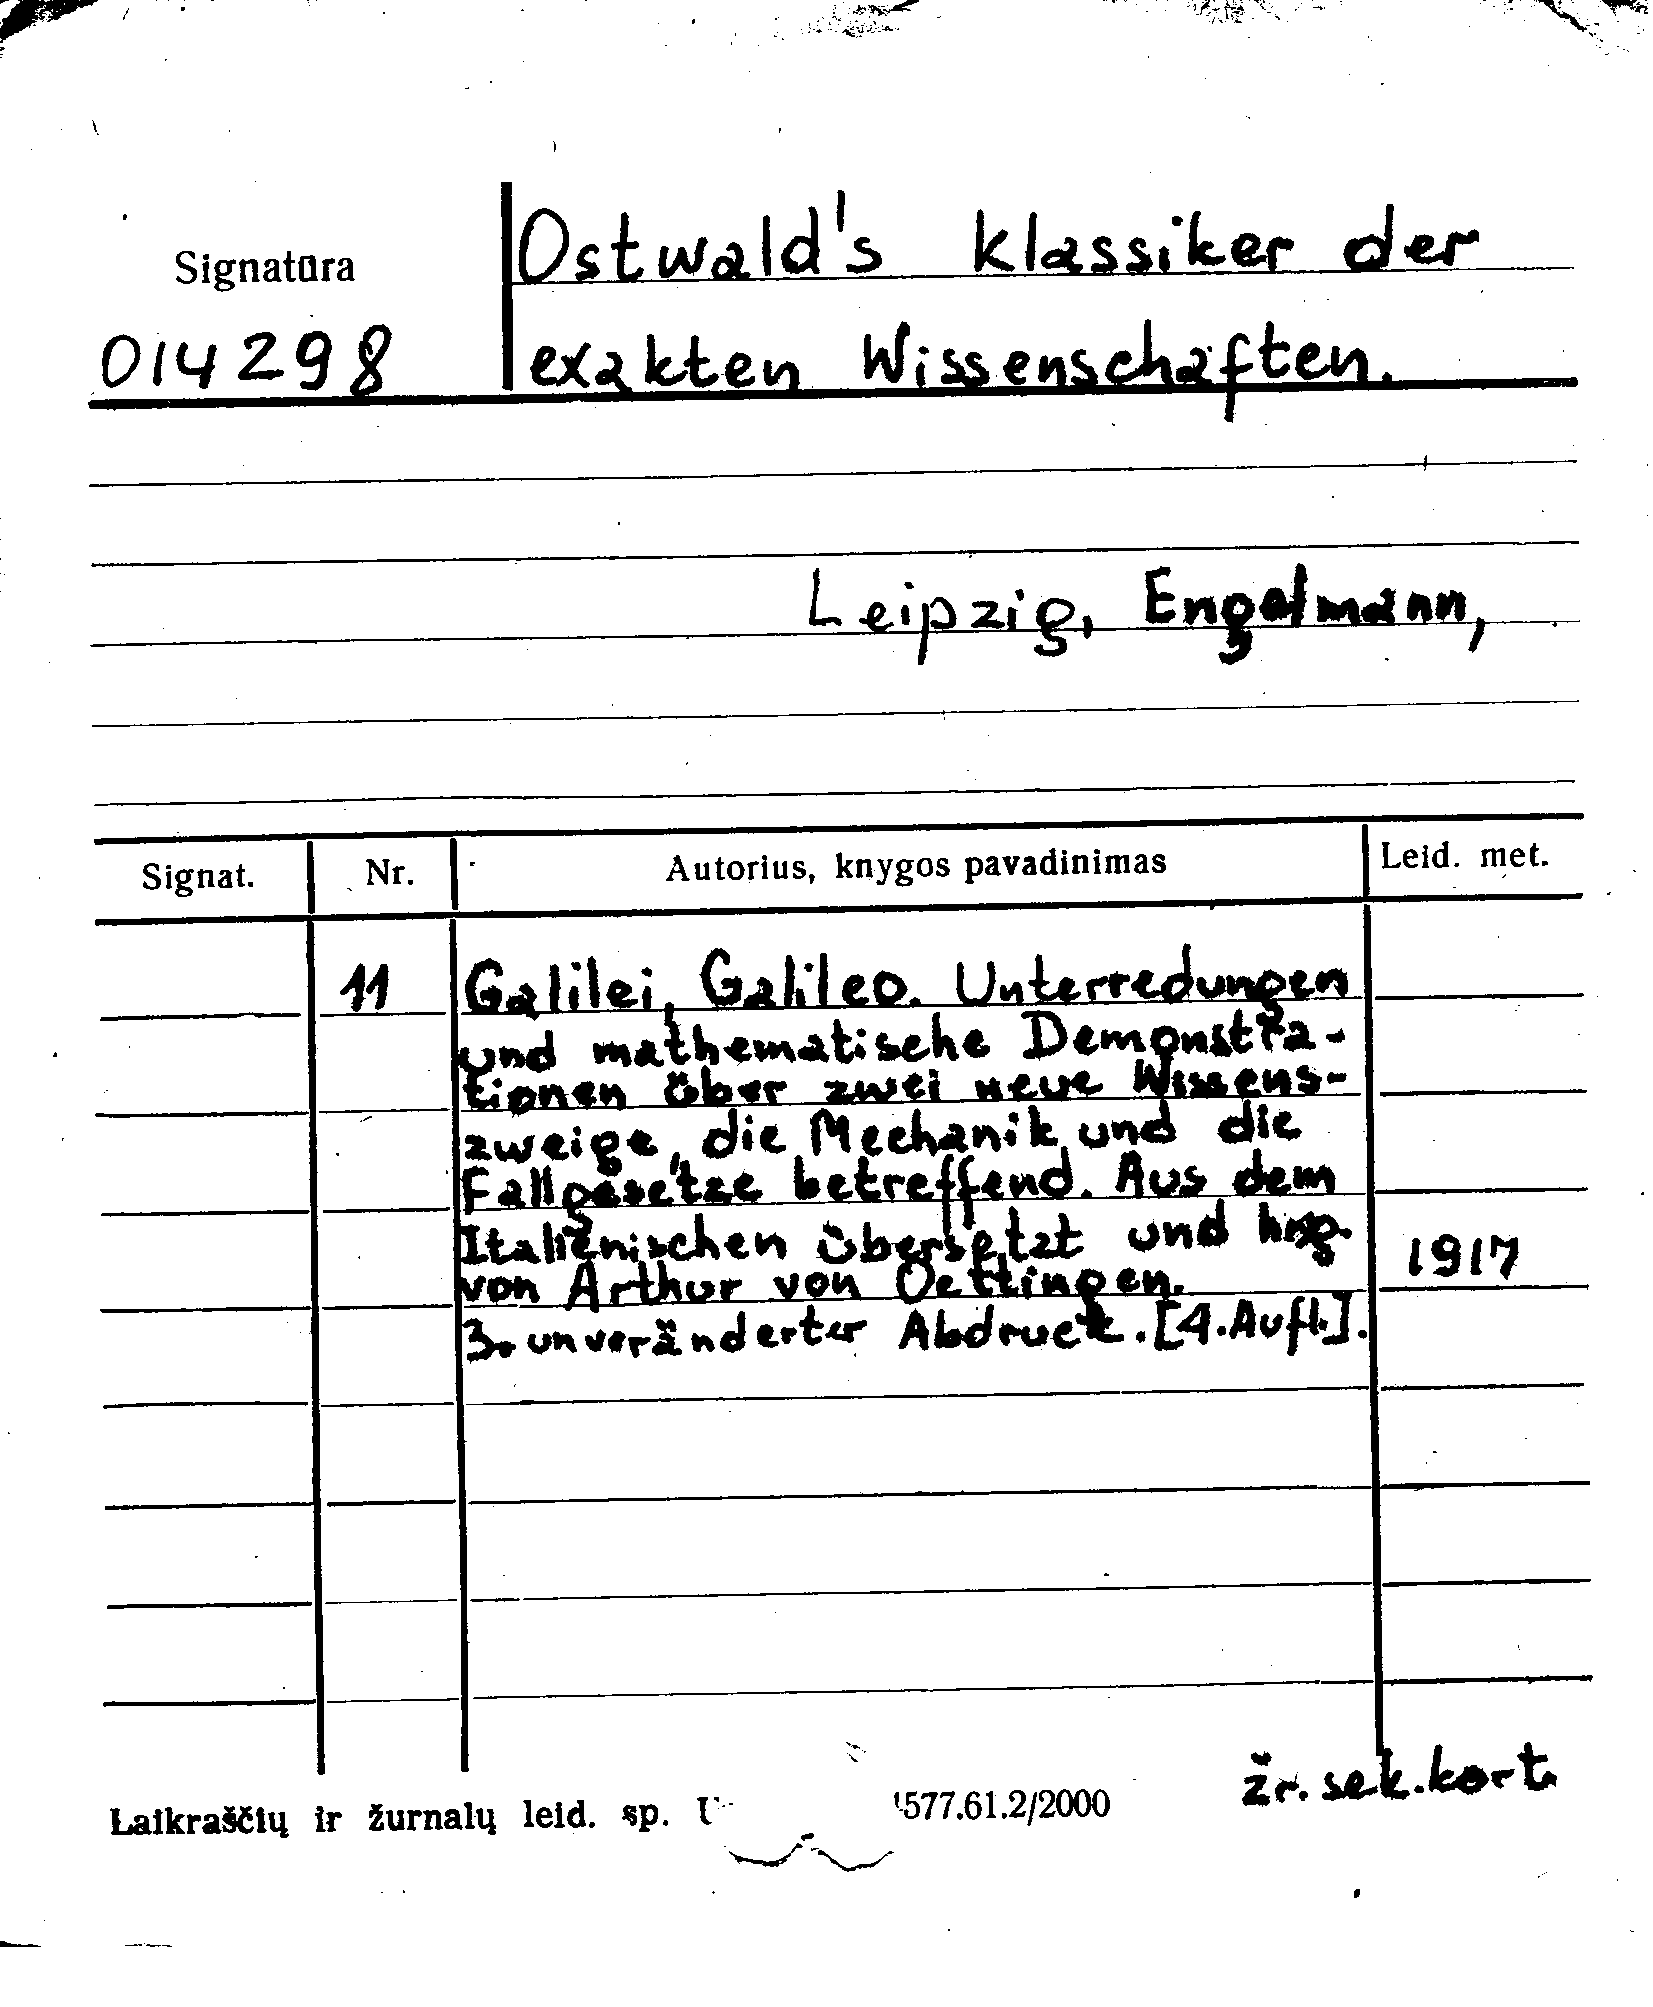 Signatūra
014298
Ostwald's Klassiker der
exakten Wissenschaften.
Leipzig, Engelmann,
Signat. Nr. Autorius, knygos pavadinimas Leid. met.
11 Galilei, Galileo. Unterredungen
und mathematische Demonstra-
tionen über zwei neue Wissens-
zweige, die Mechanik und die
Fallgesetze betreffend. Aus dem
Italienischen übersetzt und hrsg.
von Arthur von Oettingen. 1917
3. unveränderter Abdruck. [4. Aufl.].
žr. sek. kort.
Laikraščių ir žurnalų leid. sp. 577.61.2/2000